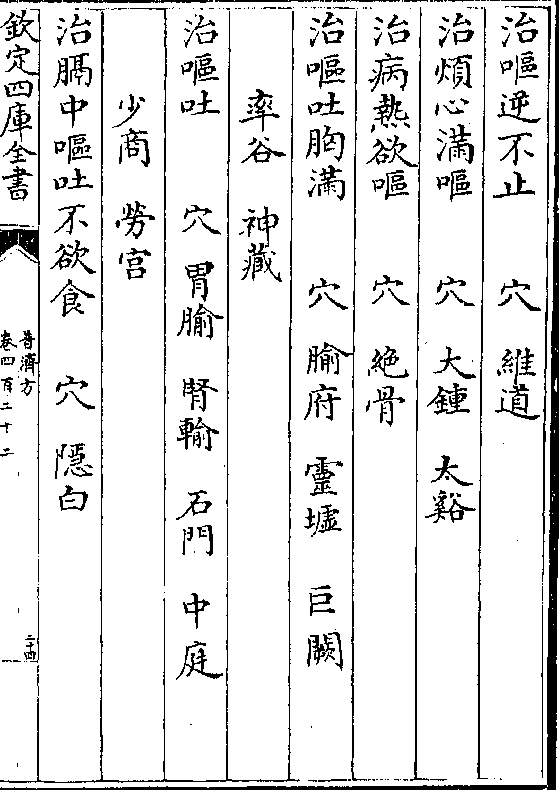 治嘔逆不止 穴 維道
治煩心滿嘔 穴 大鍾 太谿
治病熱欲嘔 穴 絶骨
治嘔吐胸滿 穴 腧府 靈墟 巨闕
率谷 神藏
治嘔吐 穴 胃腧 腎輸 石門 中庭
少商 勞宫
治膈中嘔吐不欲食 穴 隱白
欽定四庫全書
普濟方
卷四百二十二
二十四